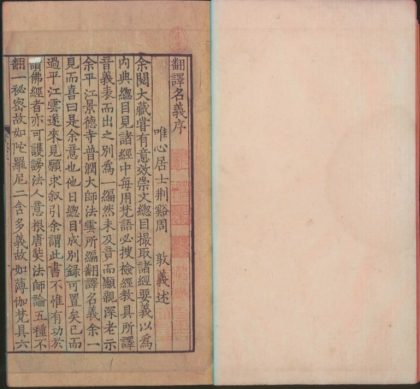 翻譯名義序
唯心居士荆谿周 敦義述
余閱大藏嘗有意效崇文總目撮取諸經要義以為
內典總目見諸經中每用梵語必搜檢經教具所譯
音義表而出之別為一編然未及音而顯親深老示
余平江景德寺普潤大師法雲所編翻譯名義余一
見而喜曰是余意也他日總目成別錄可置矣已而
過平江雲遂來見願求叙引余謂此書不惟有功於
讀佛經者亦可護謗法人意根唐奘法師論五種不
翻一秘密故如陀羅尼二含多義故如薄伽梵具六